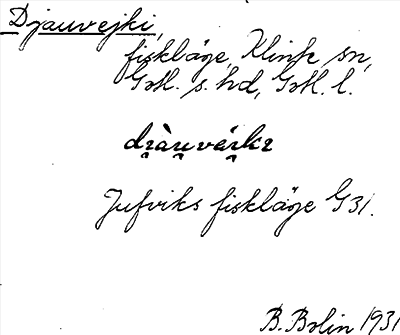 Djauvejki,
fiskläge, Klinte sn,
Gotl. s. hd, Gotl. l.
Jufviks fiskläge G 31.
B. Bolin 1931